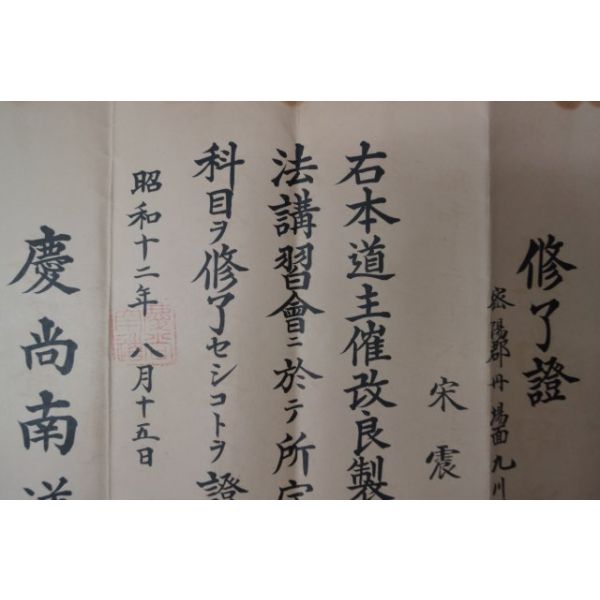 修了證
密陽郡丹場面九川
宋震
右本道主催改良製
法講習會ニ於テ所定
科目ヲ修了セシコトヲ證
昭和十二年八月十五日
慶尚南道